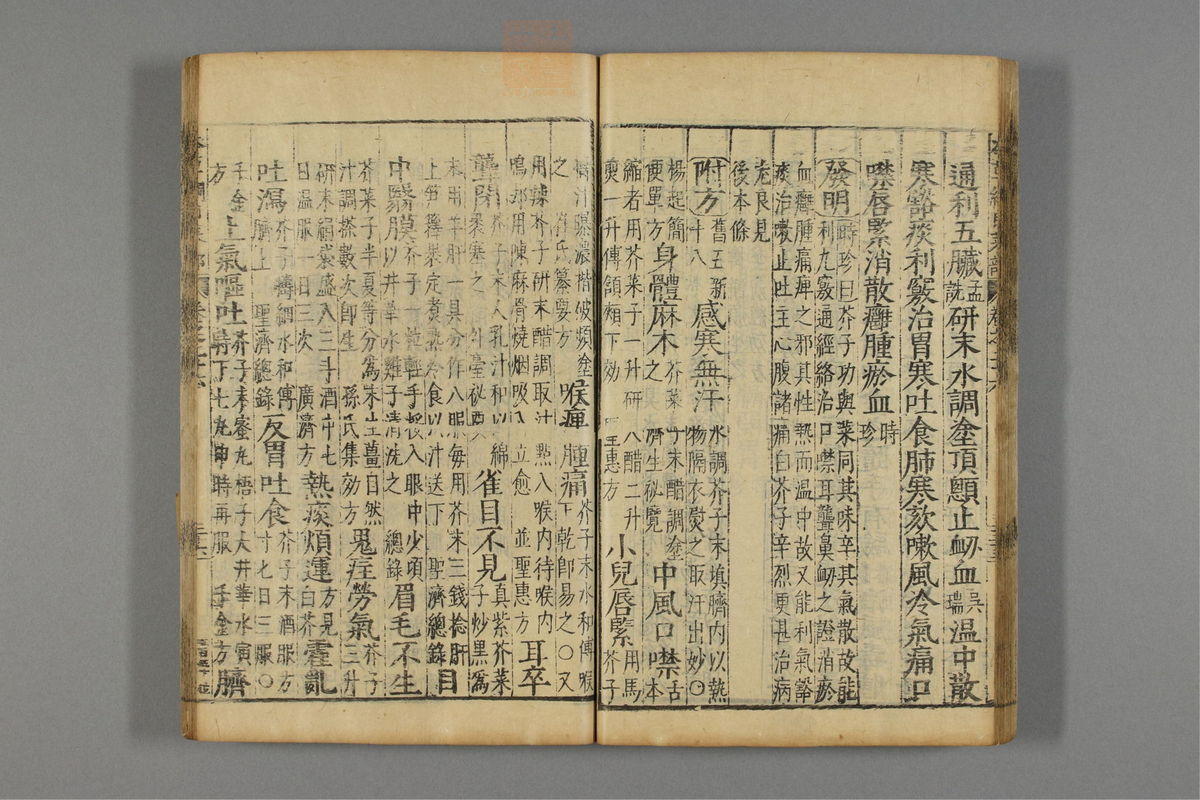 通利五臟孟詵研末水調塗頂顖止衂血吳瑞溫中散
寒豁痰利竅治胃寒吐食肺寒欬嗽風冷氣痛口
噤唇緊消散癰腫瘀血時珍
發明時珍曰芥子功與菜同其味辛其氣散故能利九竅通經絡治口噤耳聾鼻衂之證消瘀
血癰腫痛痺之邪其性熱而溫中故又能利氣豁
痰治嗽止吐主心腹諸痛白芥子辛烈更甚治病
尤良見
後本條
附方舊五新十八感寒無汗水調芥子末填臍內以熱物隔衣熨之取汗出妙○
楊起簡便單方身體麻木芥菜子末醋調塗之濟生秘覽中風口噤舌本
縮者用芥菜子一升研入醋二升煎一升傅頷頰下効聖惠方小兒唇緊用馬芥子
擣汁曝濃楷破頻塗之崔氏纂要方喉痺腫痛芥子末水和傅喉下乾即易之○又
用辣芥子研末醋調取汁點入喉內待喉內鳴却用陳麻骨燒烟吸入立愈並聖惠方耳卒
聾閉芥子末人乳汁和以綿裹塞之外臺秘要雀目不見真紫芥菜子炒黑爲
末用羊肝一具分作八服每用芥末三錢捻肝上笋籜裹定煮熟冷食以汁送下聖濟總錄目
中翳膜芥子一粒輕手挼入眼中少頃以井華水雞子清洗之總錄眉毛不生
芥菜子半夏等分爲末生薑自然汁調搽數次即生孫氏集効方鬼疰勞氣芥子三升
研末絹袋盛入三斗酒中七日溫服一日三次廣濟方熱痰煩運方見白芥霍亂
吐瀉芥子擣細水和傅臍上聖濟總錄反胃吐食芥子末酒服方寸七日三服○
千金方上氣嘔吐芥子末蜜丸梧子大井華水寅時下七丸申時再服千金方臍